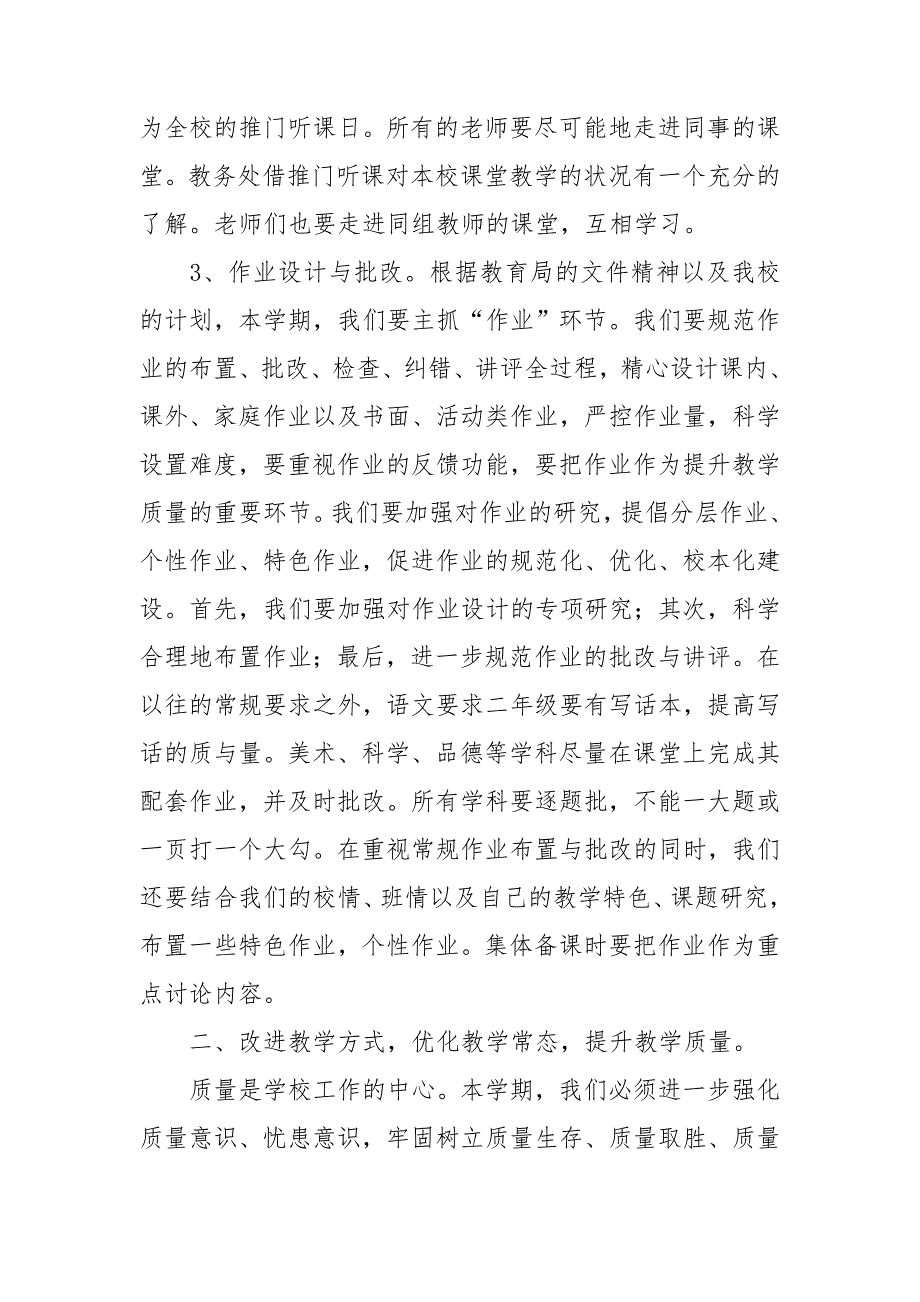 为全校的推门听课日。所有的老师要尽可能地走进同事的课
堂。教务处借推门听课对本校课堂教学的状况有一个充分的
了解。老师们也要走进同组教师的课堂，互相学习。
3、作业设计与批改。根据教育局的文件精神以及我校
的计划，本学期，我们要主抓“作业”环节。我们要规范作
业的布置、批改、检查、纠错、讲评全过程，精心设计课内、
课外、家庭作业以及书面、活动类作业，严控作业量，科学
设置难度，要重视作业的反馈功能，要把作业作为提升教学
质量的重要环节。我们要加强对作业的研究，提倡分层作业、
个性作业、特色作业，促进作业的规范化、优化、校本化建
设。首先，我们要加强对作业设计的专项研究；其次，科学
合理地布置作业；最后，进一步规范作业的批改与讲评。在
以往的常规要求之外，语文要求二年级要有写话本，提高写
话的质与量。美术、科学、品德等学科尽量在课堂上完成其
配套作业，并及时批改。所有学科要逐题批，不能一大题或
一页打一个大勾。在重视常规作业布置与批改的同时，我们
还要结合我们的校情、班情以及自己的教学特色、课题研究，
布置一些特色作业，个性作业。集体备课时要把作业作为重
点讨论内容。
二、改进教学方式，优化教学常态，提升教学质量。
质量是学校工作的中心。本学期，我们必须进一步强化
质量意识、忧患意识，牢固树立质量生存、质量取胜、质量